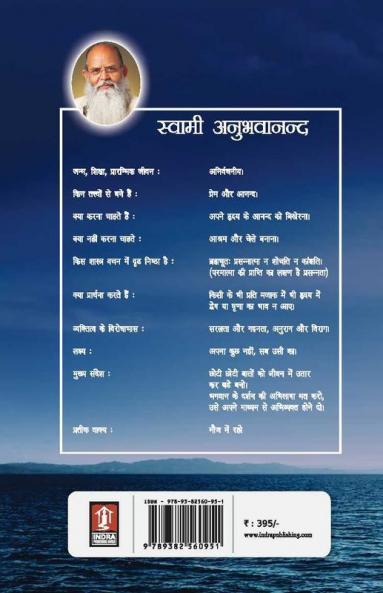 स्वामी अनुभवानन्द
जन्म, शिक्षा, प्रारम्भिक जीवन : अनिर्वचनीय।
किन तत्त्वों से बने हैं : प्रेम और आनन्द।
क्या करना चाहते हैं : अपने हृदय के आनन्द को बिखेरना।
क्या नहीं करना चाहते : आश्रम और चेले बनाना।
किस शास्त्र वचन में दृढ निष्ठा है : ब्रह्मभूतः प्रसन्नात्मा न शोचति न कांक्षति।
(परमात्मा की प्राप्ति का लक्षण है प्रसन्नता)
क्या प्रार्थना करते हैं : किसी के भी प्रति मजाक में भी हृदय में
द्वेष या घृणा का भाव न आए।
अस्तित्व के विरोधाभास : सरलता और गहनता, अनुराग और विराग।
लक्ष्य : अपना कुछ नहीं, सब उसी का।
मुख्य संदेश : छोटी छोटी बातों को जीवन में उतार
कर बड़े बनो।
भगवान के दर्शन की अभिलाषा मत करो,
उसे अपने माध्यम से अभिव्यक्त होने दो।
प्रतीक वाक्य : मौज में रहो
ISBN - 978-93-82560-95-1
9 789382 560951
INDRA
₹ : 395/-
www.indrapublishing.com